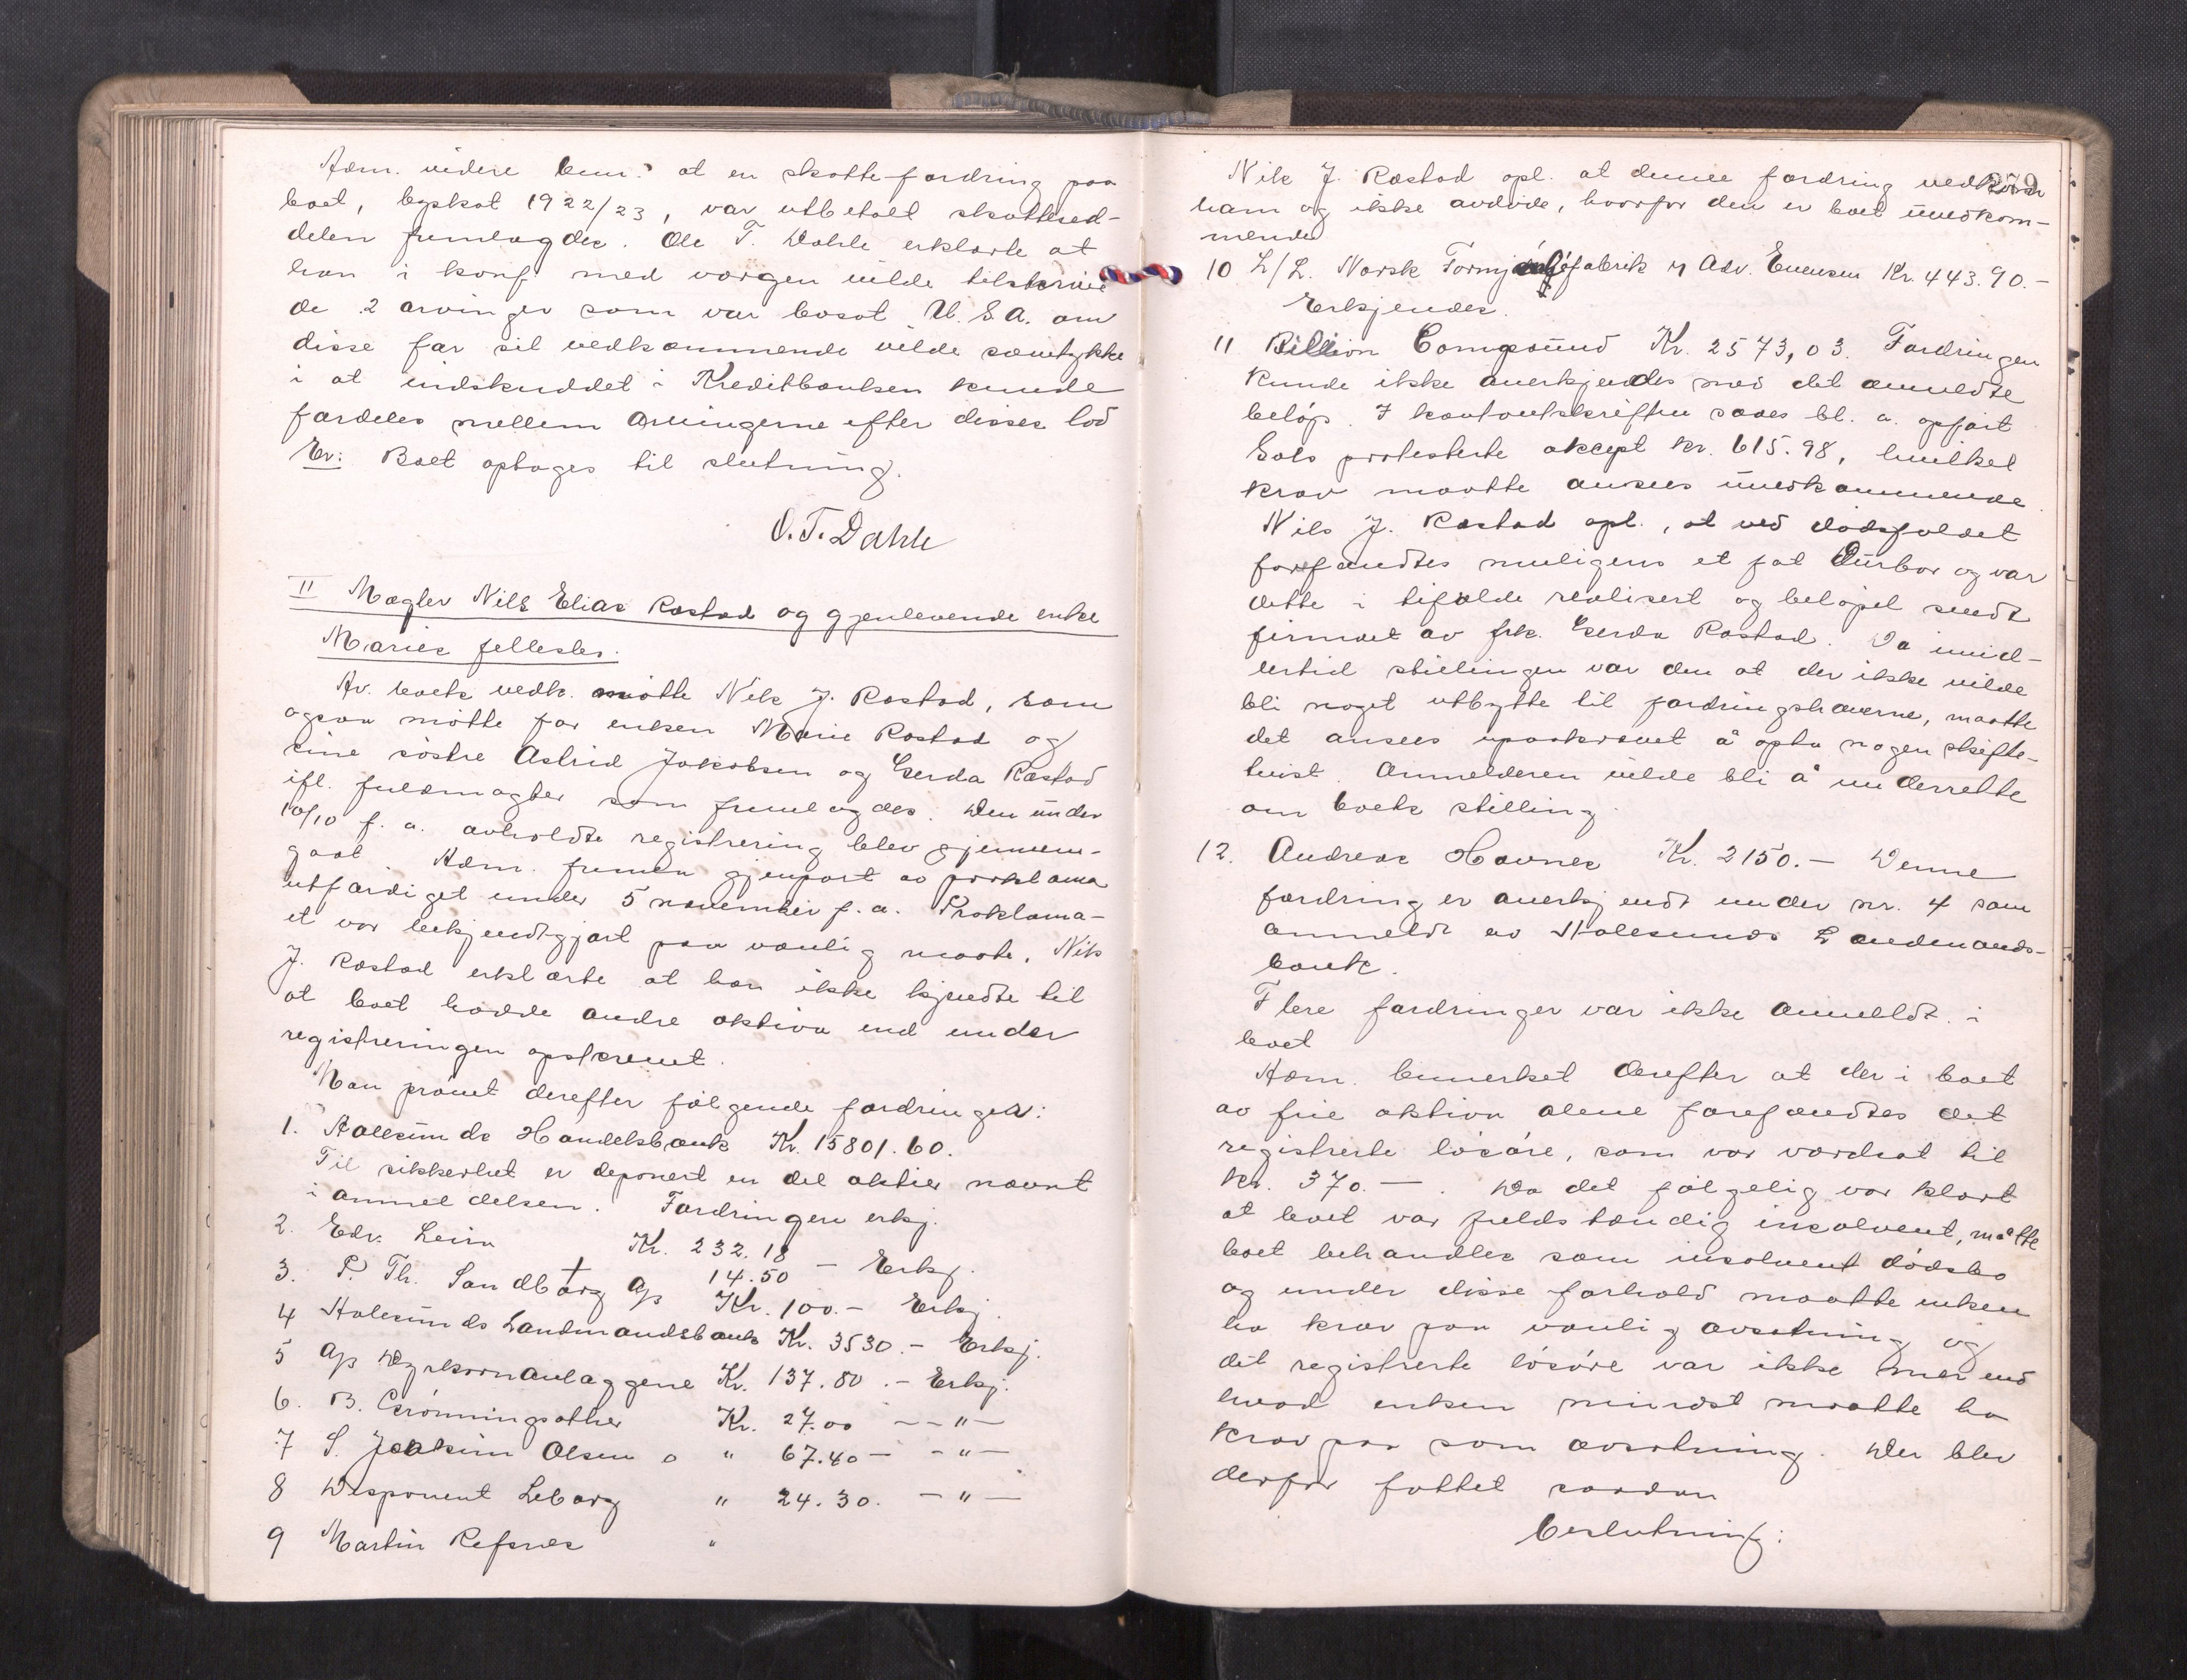 Adm. videre bem. at en skattefordring paa
boet, byskat 1922/23, var utbetalt skattesed-
delen fremlagdes. Ole T. Dahle erklærte at
han i konf. med værgen vilde tilskrive
de 2 arvinger som var bosat U.S.A. om
disse for sit vedkommende vilde samtykke
i at indskuddet i Kreditbanken kunde
fordeles mellem arvingerne efter disses lod
Er: Boet optages til slutning.
O. T. Dahle
II Mægler Nils Elias Rastad og gjenlevende enke
Maries fellesbo.
Av boets vedk. møtte Nils J. Rastad, som
ogsaa møtte for enken Marie Rastad og
sine søstre Astrid Jakobsen og Gerda Rastad
ifl. fuldmagter som fremlagdes. Den under
10/10 f. a. avholdte registrering blev gjennem-
gaat. Adm. freml. gjenpart av proklama
utfærdiget under 5 november f. a. Proklama-
et var bekjendtgjort paa vanlig maate. Nils
J. Rastad erklærte at han ikke kjendte til
at boet hadde andre aktiva end under
registreringen opskrevet.
Man prøvet derefter følgende fordringer:
1. Aalesunds Handelsbank Kr. 15801.60.
Til sikkerhet er deponert en del aktier nævnt
i anmeldelsen. Fordringen erkj.
2. Edv. Leira Kr. 232.18 - Erkj.
14.50
3. P. Th. Sandborg A/S Kr. 100.- Erkj.
4 Aalesunds Landmandsbank Kr. 3530.- Erkj.
5 A/S Dyrkornanlæggene Kr. 137.80.- Erkj.
6. B. Grønningsæther Kr. 27.00 - - " -
7 S. Joakim Olsen " 67.40 - - " -
8 Disponent Leborg " 24.30. - " -
9 Martin Refsnes "
279
Nils J. Rastad opl. at denne fordring vedkom
ham og ikke avdøde, hvorfor den er boet uvedkom-
mende
10 L/L. Norsk fabrik v/ Adv. Evensen Kr. 443.90.-
Erkjendes.
11 Billion Compound Kr. 2573,03. Fordringen
kunde ikke anerkjendes med det anmeldte
beløp. I kontoutskriften saaes bl. a. opført
protesterte aksept kr. 615.98, hvilket
krav maatte ansees uvedkommende.
Nils J. Rastad opl., at ved dødsfaldet
forefandtes muligens et fat og var
dette i tilfælde realisert og beløpet sendt
firmaet av frk. Gerda Rastad. Da imid-
lertid stillingen var den at der ikke vilde
bli noget utbytte til fordringshaverne, maatte
det ansees upaakrævet å opta nogen skifte-
tvist. Anmelderen vilde bli å underrette
om boets stilling.
12. Andreas Havnes Kr. 2150.- Denne
fordring er anerkjendt under nr. 4 som
anmeldt av Aalesunds Landmands-
bank.
Flere fordringer var ikke anmeldt i
boet
Adm. bemerket derefter at der i boet
av frie aktiva alene forefandtes det
registrerte løsøre, som var værdsat til
Kr. 370.- . Da det følgelig var klart
at boet var fuldstændig insolvent, måtte
boet behandles som insolvent dødsbo
og under disse forhold maatte enken
ha krav paa vanlig avsetning og
det registrerte løsøre var ikke mer end
hvad enken mindst maatte ha
krav paa som avsetning. Der blev
derfor fattet saadan
beslutning: